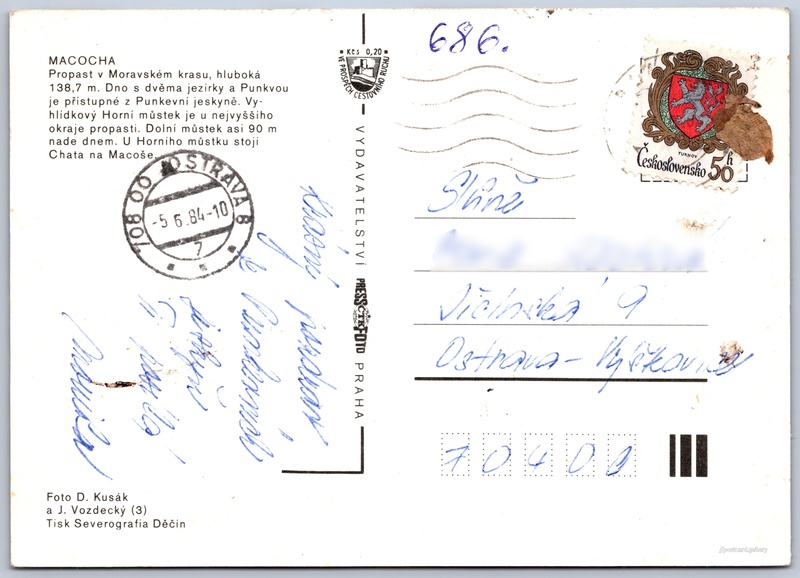 MACOCHA
Propast v Moravském krasu, hluboká
138,7 m. Dno s dvěma jezírky a Punkvou
je přístupné z Punkevní jeskyně. Vy-
hlídkový Horní můstek je u nejvyššího
okraje propasti. Dolní můstek asi 90 m
nade dnem. U Horního můstku stojí
Chata na Macoše.
Kčs 0,20
VE PROSPĚCH CESTOVNÍHO RUCHU
686.
TURNOV
Československo 50 h
708 00 OSTRAVA 8
-5.6.84-10
7
VYDAVATELSTVÍ PRESSFOTO PRAHA
ČTK
Krásný pozdrav
posílá
Slečně
Jičínská 9
Ostrava-Výškovice
70400
Foto D. Kusák
a J. Vozdecký (3)
Tisk Severografia Děčín